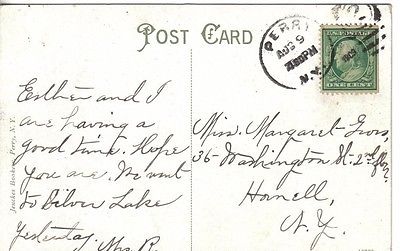 POST CARD
PERRY
AUG 9
230PM
N.Y.
1909
U.S. POSTAGE
ONE CENT
Esther and I
are having a
good time. Hope
you are. We went
to Silver Lake
yesterday. Mrs. R.
Miss. Margaret
36 Washington St. 2nd flo
Hornell,
N.Y.
Perry, N.Y.